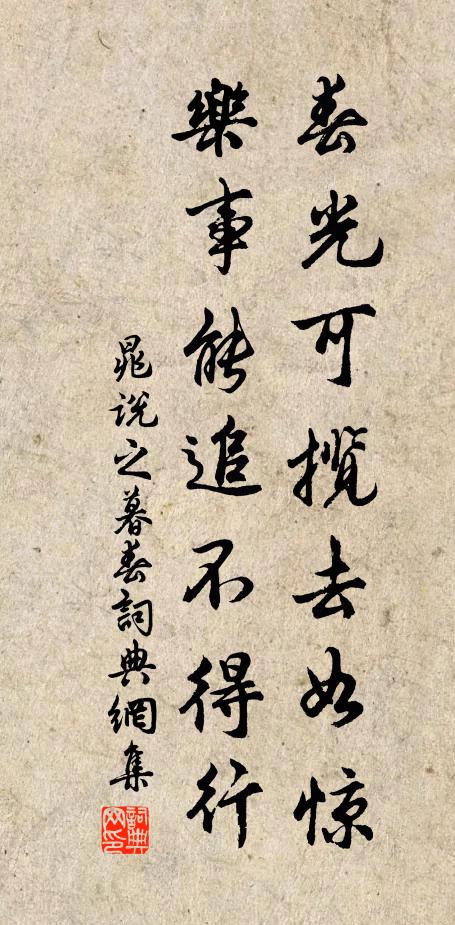 春光可揽去如惊
樂事能追不得行
晁说之暮春詞典網集
詞典网印